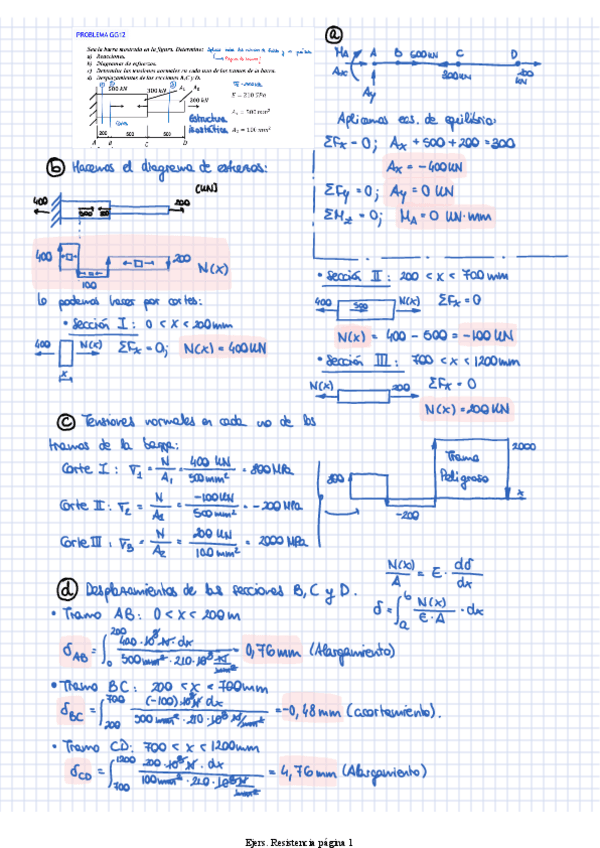 PROBLEMA GG12
Sea la barra mostrada en la figura. Determine:
a) Reacciones.
b) Diagrama de esfuerzos.
c) Determinar las tensiones normales en cada uno de los tramos de la barra.
d) Desplazamientos de las secciones B, C y D.
500 kN
300 kN
A₁
A₂
200 kN
E = 210 GPa
A₁ = 500 mm²
A₂ = 100 mm²
Estructura
isostática
200
500
500
A B C D
ⓐ
MA A B 500KN C D
Ax 300KN 200 KN
Ay
Aplicamos ecs. de equilibrio:
ΣFx = 0; Ax + 500 + 200 = 300
Ax = -400KN
ΣFy = 0; Ay = 0 KN
ΣMz = 0; MA = 0 KN·mm
ⓑ Hacemos el diagrama de esfuerzos:
[KN]
400
500
300
200
400
100
200
N(x)
lo podemos hacer por cortes:
• Sección I: 0 < x < 200mm
400 N(x) ΣFx = 0; N(x) = 400KN
x
• Sección II: 200 < x < 700mm
400 500 N(x) ΣFx = 0
N(x) = 400 - 500 = -100KN
• Sección III: 700 < x < 1200mm
N(x) 200 ΣFx = 0
N(x) = 200KN
ⓒ Tensiones normales en cada uno de los
tramos de la barra:
Corte I: σ₁ = N/A₁ = 400 KN/500mm² = 800MPa
Corte II: σ₂ = N/A₁ = -100KN/500mm² = -200MPa
Corte III: σ₃ = N/A₂ = 200 KN/100mm² = 2000MPa
800
-200
Tramo
Peligroso
2000
x
N(x)/A = E · dδ/dx
δ = ∫ₐᵇ N(x)/E·A · dx
ⓓ Desplazamientos de las secciones B, C y D.
• Tramo AB: 0 < x < 200m
δAB = ∫₀²⁰⁰ 400·10³ N dx / 500mm²·210·10³ N/mm² = 0,76mm (Alargamiento)
• Tramo BC: 200 < x < 700mm
δBC = ∫₂₀₀⁷⁰⁰ (-100)·10³N dx / 500mm²·210·10³ N/mm² = -0,48mm (acortamiento).
• Tramo CD: 700 < x < 1200mm
δCD = ∫₇₀₀¹²⁰⁰ 200·10³N·dx / 100mm²·210·10³N/mm² = 4,76mm (Alargamiento)
Ejers. Resistencia página 1